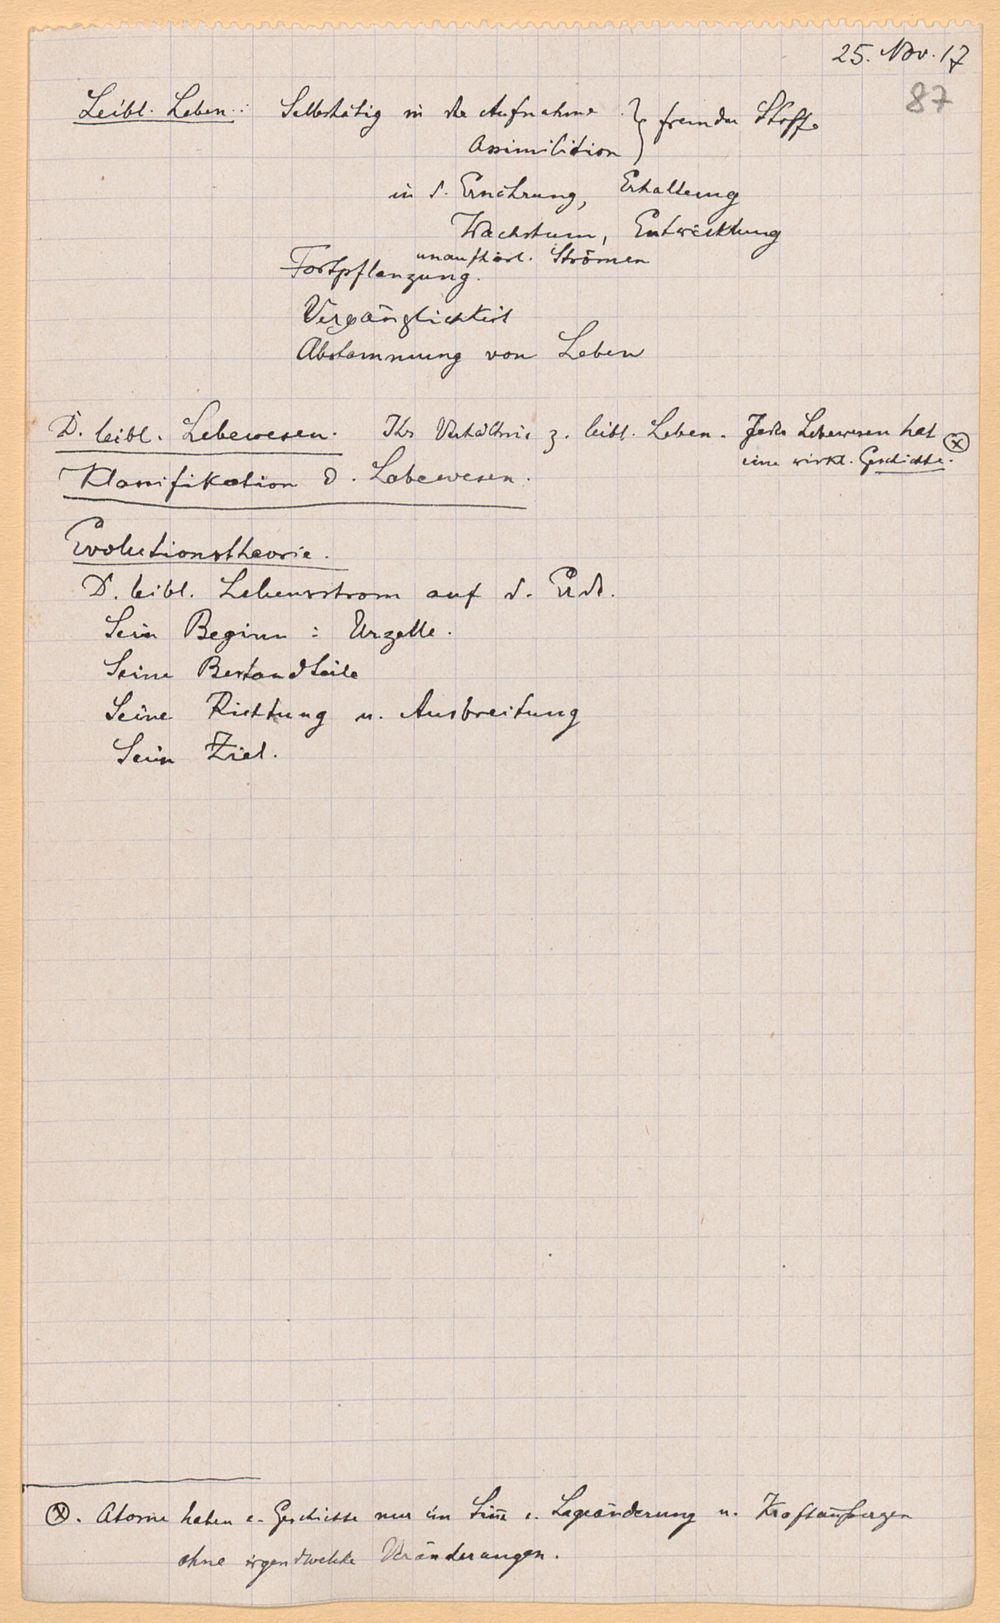 25. Nov. 17
87
Leibl. Leben: Selbsttätig in der Aufnahme } fremder Stoffe
Assimilation
in d. Ernährung, Erhaltung
Wachstum, Entwicklung
unaufhörl. Strömen
Fortpflanzung.
Vergänglichkeit
Abstammung von Leben
D. leibl. Lebewesen. Ihr Verhältnis z. leibl. Leben. Jedes Lebewesen hat ⊗
eine wirkl. Geschichte.
Klassifikation d. Lebewesen.
Evolutionstheorie.
D. leibl. Lebensstrom auf d. Erde.
Sein Beginn: Urzelle.
Seine Bestandteile
Seine Richtung u. Ausbreitung
Sein Ziel.
⊗. Atome haben e. Geschichte nur im Sinne e. Lageänderung u.
ohne irgendwelche Veränderungen.